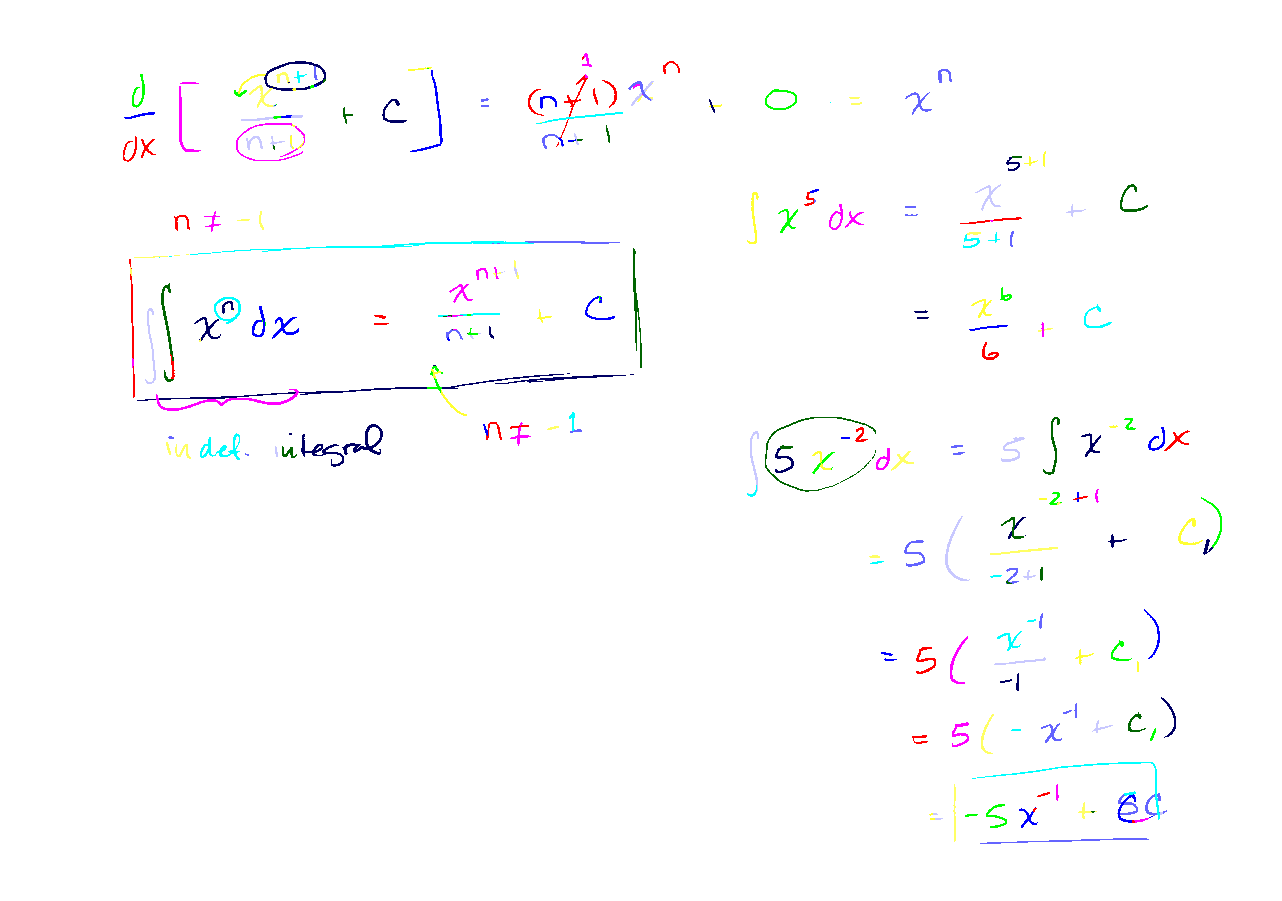 d/dx [ x^(n+1)/(n+1) + C ] = (n+1)/(n+1) 1 x^n + 0 = x^n
n ≠ -1
∫ x^n dx = x^(n+1)/(n+1) + C
n ≠ -1
indef. integral
∫ x^5 dx = x^(5+1)/(5+1) + C
= x^6/6 + C
∫ 5 x^(-2) dx = 5 ∫ x^(-2) dx
= 5 ( x^(-2+1)/(-2+1) + C₁ )
= 5 ( x^(-1)/(-1) + C₁ )
= 5 ( - x^(-1) + C₁ )
= -5 x^(-1) + C